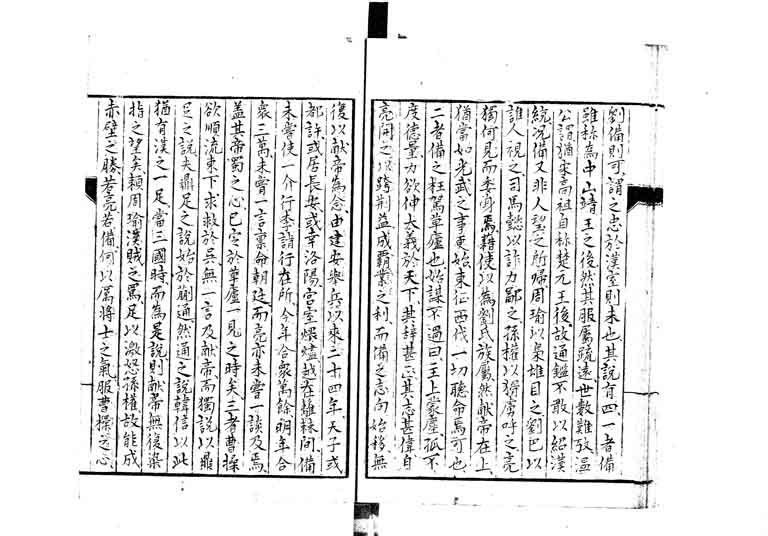 劉備則可謂之忠於漢室則未也其説有四一者備
雖称為中山靖王之後然其服屬疏遠世數難攷温
公謂猶宋高祖自称楚元王後故通鑑不敢以紹漢
統况備又非人望之所歸周瑜以梟雄目之劉巴以
誰人視之司馬懿以詐力鄙之孫權以猾虜呼之亮
獨何見而委身焉藉使以為劉氏族屬然献帝在上
猶當如光武之事更始東征西伐一切聽命焉可也
二者備之枉駕草廬也始謀不過曰主上蒙塵孤不
度德量力欲伸大義於天下其辞甚正其志甚偉自
亮開之以跨荆益成霸業之利而備之志向始移無
復以献帝為念由建安舉兵以來二十四年天子或
都許或居長安或幸洛陽宫室煨燼越在籬棘間備
未嘗使一介行李詣行在所今年合衆萬餘明年合
衆三萬未嘗一言禀命朝廷而亮亦未嘗一談及焉
盖其帝蜀之心已定於草廬一見之時矣三者曹操
欲順流東下求救於吳無一言及献帝而獨説以鼎
足之説夫鼎足之説始於蒯通然通之説韓信以此
猶有漢之一足當三國時而為是説則献帝無復染
指之望矣頼周瑜漢賊之罵足以激怒孫權故能成
赤壁之勝若亮若備何以厲将士之氣服曹操之心